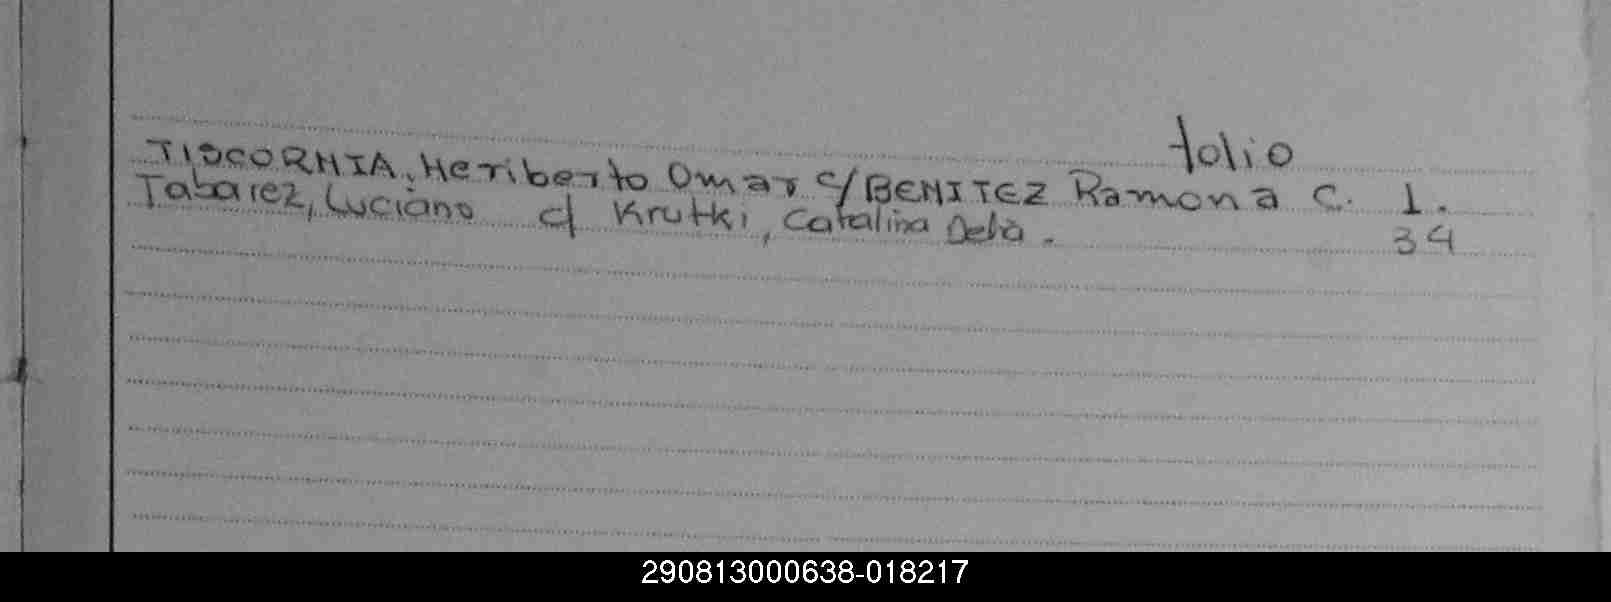 folio
TISCORNIA, Heriberto Omar c/ BENITEZ Ramona C. 1.
Tabarez, Luciano c/ Krutki, Catalina Delia. 34
290813000638-018217